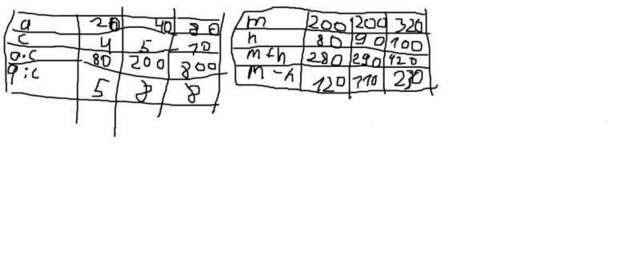 a 20 40 80
c 4 5 10
a·c 80 200 800
a:c 5 8 8
m 200 200 320
n 80 90 100
m+n 280 290 420
m-n 120 110 230